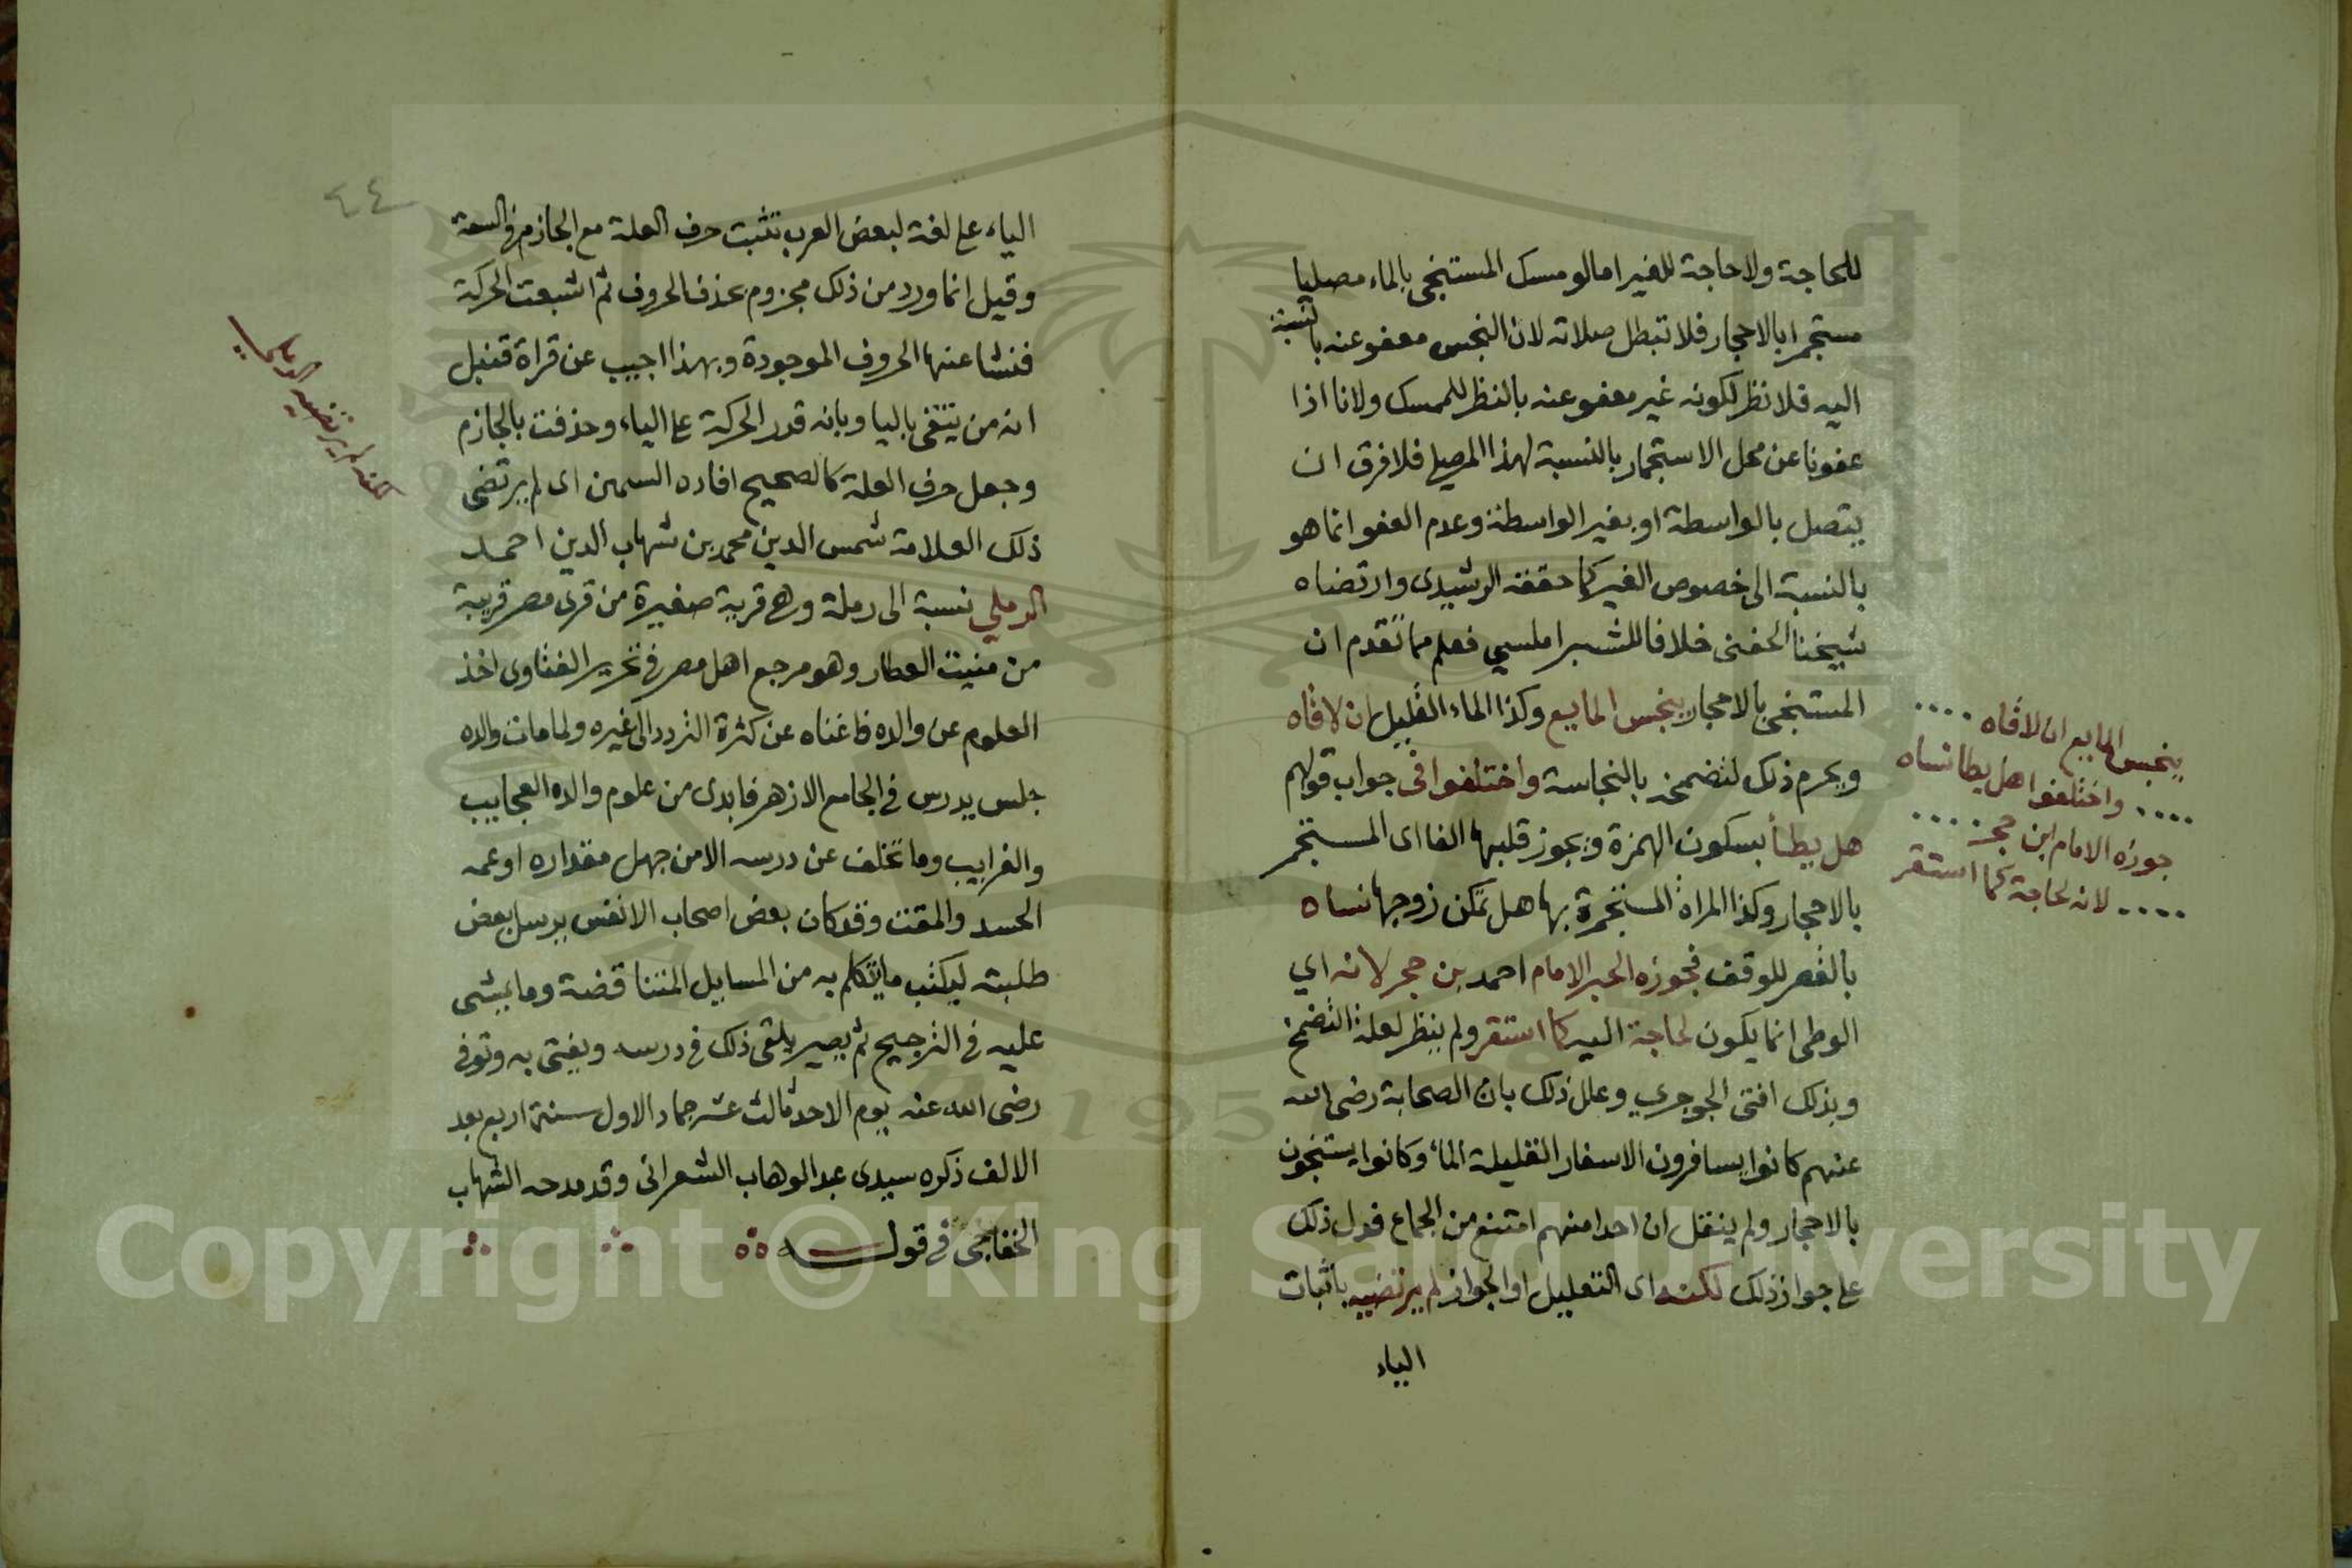 للحاجة ولا حاجة للغير اما لو مسك المستنجي بالماء مصليا
مستجمرا بالاحجار فلا تبطل صلاته لان النجس معفو عنه بالنسبة
اليه فلا نظر لكونه غير معفو عنه بالنظر للممسك ولانا اذا
عفونا عن محل الاستجمار بالنسبة لهذا المصلي فلا فرق ان
يتصل بالواسطة او بغير الواسطة وعدم العفو انما هو
بالنسبة الى خصوص الغير كما حققه الرشيدى وارتضاه
شيخنا الحفنى خلافا للشبراملسي فعلم مما تقدم ان
المستنجى بالاحجار ينجس المايع وكذا الماء القليل ان لاقاه
ويحرم ذلك لتضمخه بالنجاسة واختلفوا فى جواب قولهم
هل يطأ بسكون الهمزة ويجوز قلبها الفا اى المستجمر
بالاحجار وكذا المراة المستجمرة بها هل تمكن زوجها نساه
بالقصر للوقف فجوزه الحبر الامام احمد بن حجر لانه اي
الوطى انما يكون لحاجة اليه كما استقر ولم ينظر لعلة التضمخ
وبذلك افتى الجوجري وعلل ذلك بان الصحابة رضى الله
عنهم كانوا يسافرون الاسفار القليلة الماء وكانوا يستنجون
بالاحجار ولم ينقل ان احدا منهم امتنع من الجماع فدل ذلك
على جواز ذلك لكنه اى التعليل او الجواز لم يرتضيه باثبات
الياء
ينجس المايع ان لاقاه ....
.... واختلفوا هل يطا نساه
جوزه الامام ابن حجر ....
.... لانه لحاجة كما استقر
٤٤
الياء على لغة لبعض العرب تثبت حرف العلة مع الجازم فى السعة
وقيل انما ورد من ذلك مجزوم بحذف الحروف ثم اشبعت الحركة
فنشا عنها الحروف الموجودة وبهذا اجيب عن قراة قنبل
انه من يتقى باليا وبانه قدر الحركة على الياء وحذفت بالجازم
وجعل حرف العلة كالصحيح افاده السمين اى لم يرتضى
ذلك العلامة شمس الدين محمد بن شهاب الدين احمد
الرملي نسبة الى رملة وهى قرية صغيرة من قرى مصر قريبة
من منيت العطار وهو مرجع اهل مصر فى تحرير الفتاوى اخذ
العلوم عن والده فاغناه عن كثرة التردد الى غيره ولما مات والده
جلس يدرس فى الجامع الازهر فابدى من علوم والده العجايب
والغرايب وما تخلف عن درسه الا من جهل مقداره او عمه
الحسد والمقت وقد كان بعض اصحاب الانفس يرسل بعض
طلبته ليكتب ما يتكلم به من المسايل المتناقضة وما يمشى
عليه فى الترجيح ثم يصير يلقى ذلك فى درسه ويفتى به وتوفى
رضى الله عنه يوم الاحد ثالث عشر جماد الاول سنة اربع بعد
الالف ذكره سيدى عبد الوهاب الشعرانى وقد مدحه الشهاب
الخفاجى فى قوله
لكنه لم يرتضيه الرملي
Copyright © King Saud University
1957